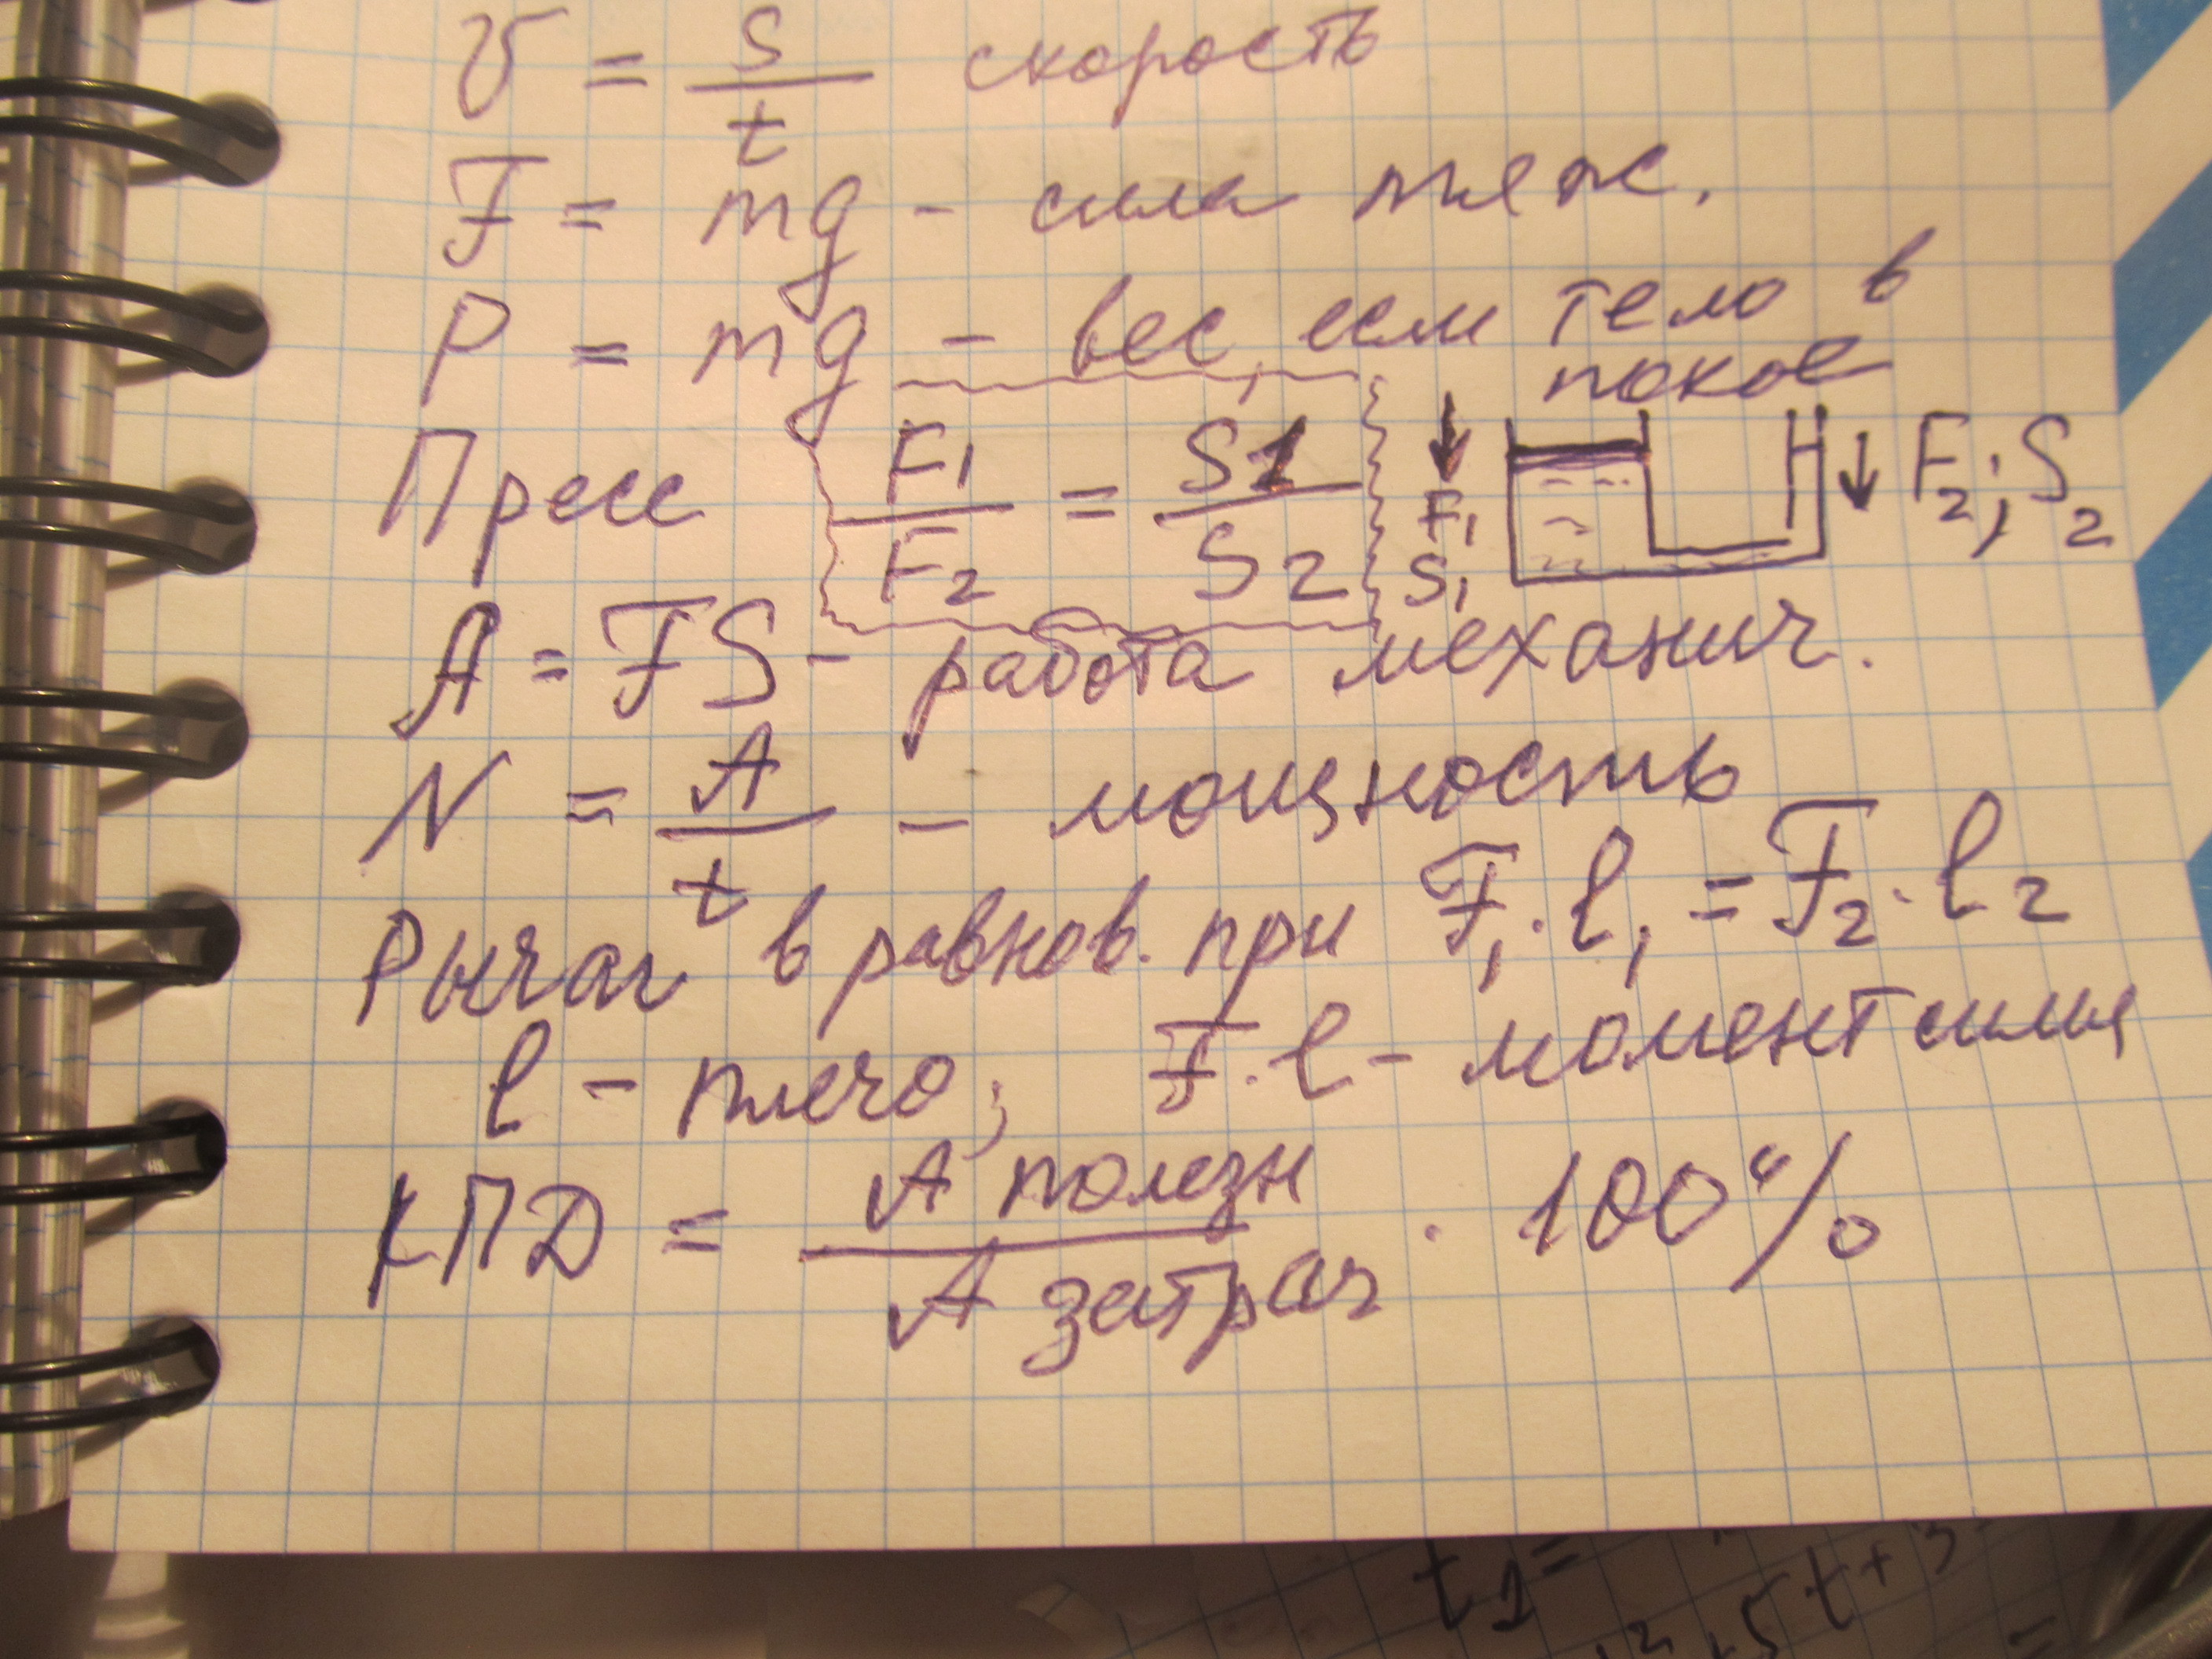 v = s/t скорость
F = mg - сила тяж.
P = mg - вес, если тело в
покое
Пресс F1/F2 = S1/S2 F1 S1 F2; S2
A = FS - работа механич.
N = A/t - мощность
Рычаг в равнов. при F1·l1 = F2·l2
l - плечо; F·l - момент силы
КПД = A полезн / A затрач · 100%
t1 =
+5t+3
=